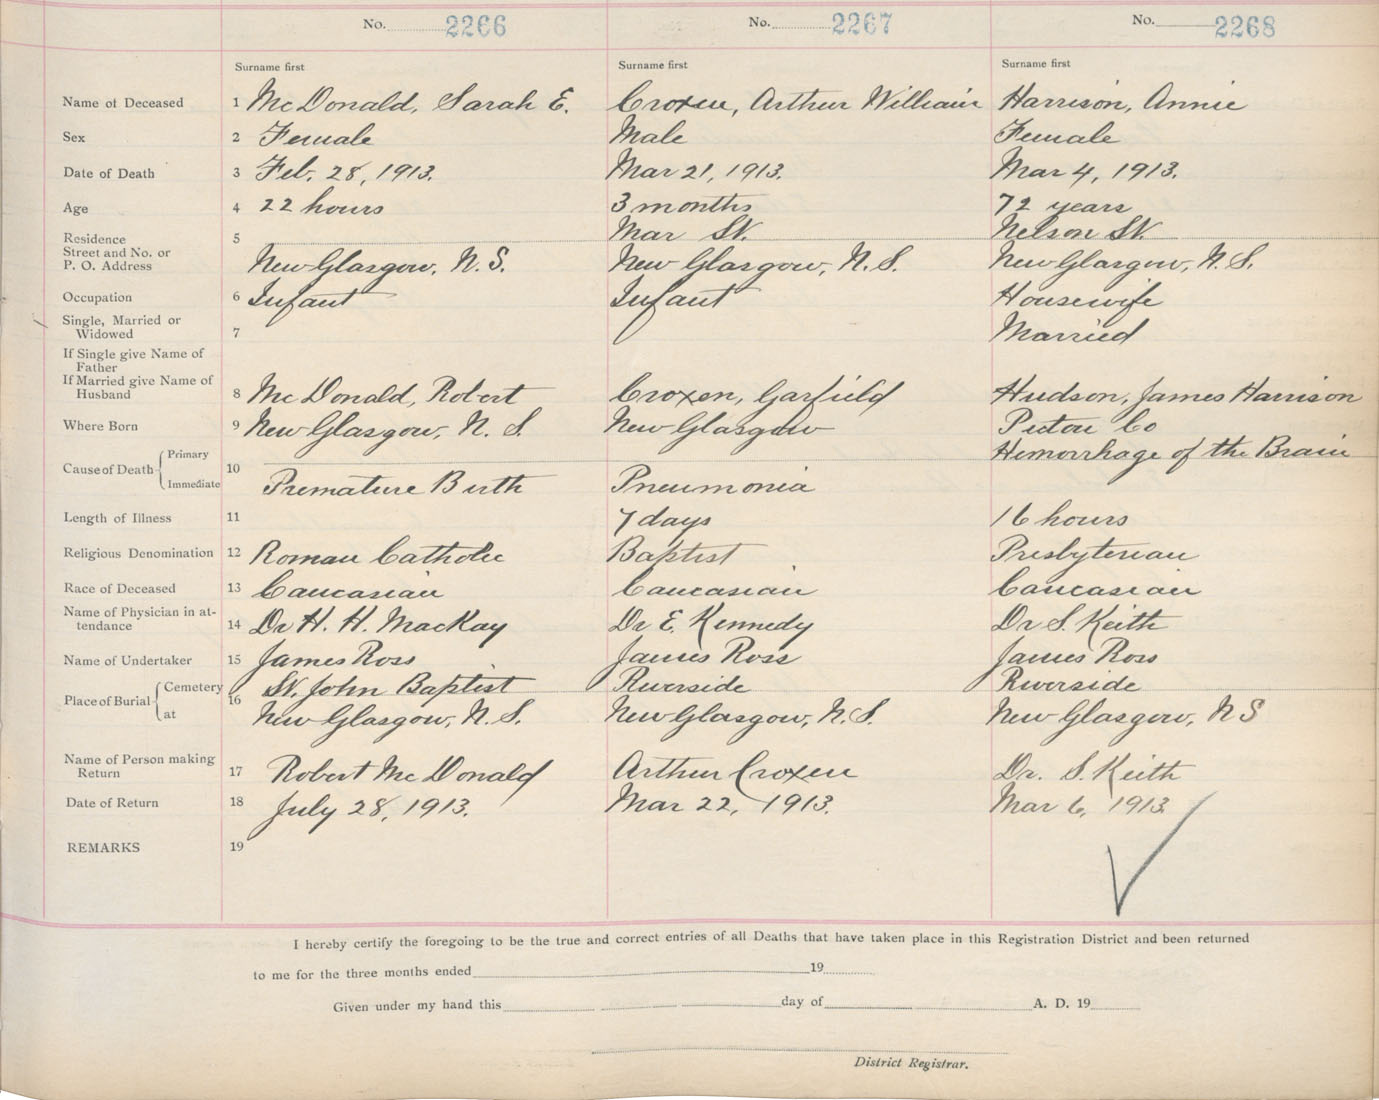 No. 2266 No. 2267 No. 2268
Surname first Surname first Surname first
Name of Deceased 1 McDonald, Sarah E. Croxen, Arthur William Harrison, Annie
Sex 2 Female Male Female
Date of Death 3 Feb. 28, 1913. Mar 21, 1913. Mar 4, 1913.
Age 4 22 hours 3 months 72 years
Residence 5 Mar St. Nelson St.
Street and No. or
P. O. Address New Glasgow, N. S. New Glasgow, N. S. New Glasgow, N. S.
Occupation 6 Infant Infant Housewife
Single, Married or
Widowed 7 Married
If Single give Name of
Father
If Married give Name of
Husband 8 McDonald, Robert Croxen, Garfield Hudson, James Harrison
Where Born 9 New Glasgow, N. S. New Glasgow Pictou Co
Cause of Death Primary 10 Hemorrhage of the Brain
Immediate Premature Birth Pneumonia
Length of Illness 11 7 days 16 hours
Religious Denomination 12 Roman Catholic Baptist Presbyterian
Race of Deceased 13 Caucasian Caucasian Caucasian
Name of Physician in at-
tendance 14 Dr H. H. MacKay Dr E. Kennedy Dr S. Keith
Name of Undertaker 15 James Ross James Ross James Ross
Place of Burial Cemetery 16 St. John Baptist Riverside Riverside
at New Glasgow, N. S. New Glasgow, N. S. New Glasgow, N S
Name of Person making
Return 17 Robert McDonald Arthur Croxen Dr. S. Keith
Date of Return 18 July 28, 1913. Mar 22, 1913. Mar 6, 1913
REMARKS 19
I hereby certify the foregoing to be the true and correct entries of all Deaths that have taken place in this Registration District and been returned
to me for the three months ended 19
Given under my hand this day of A. D. 19
District Registrar.